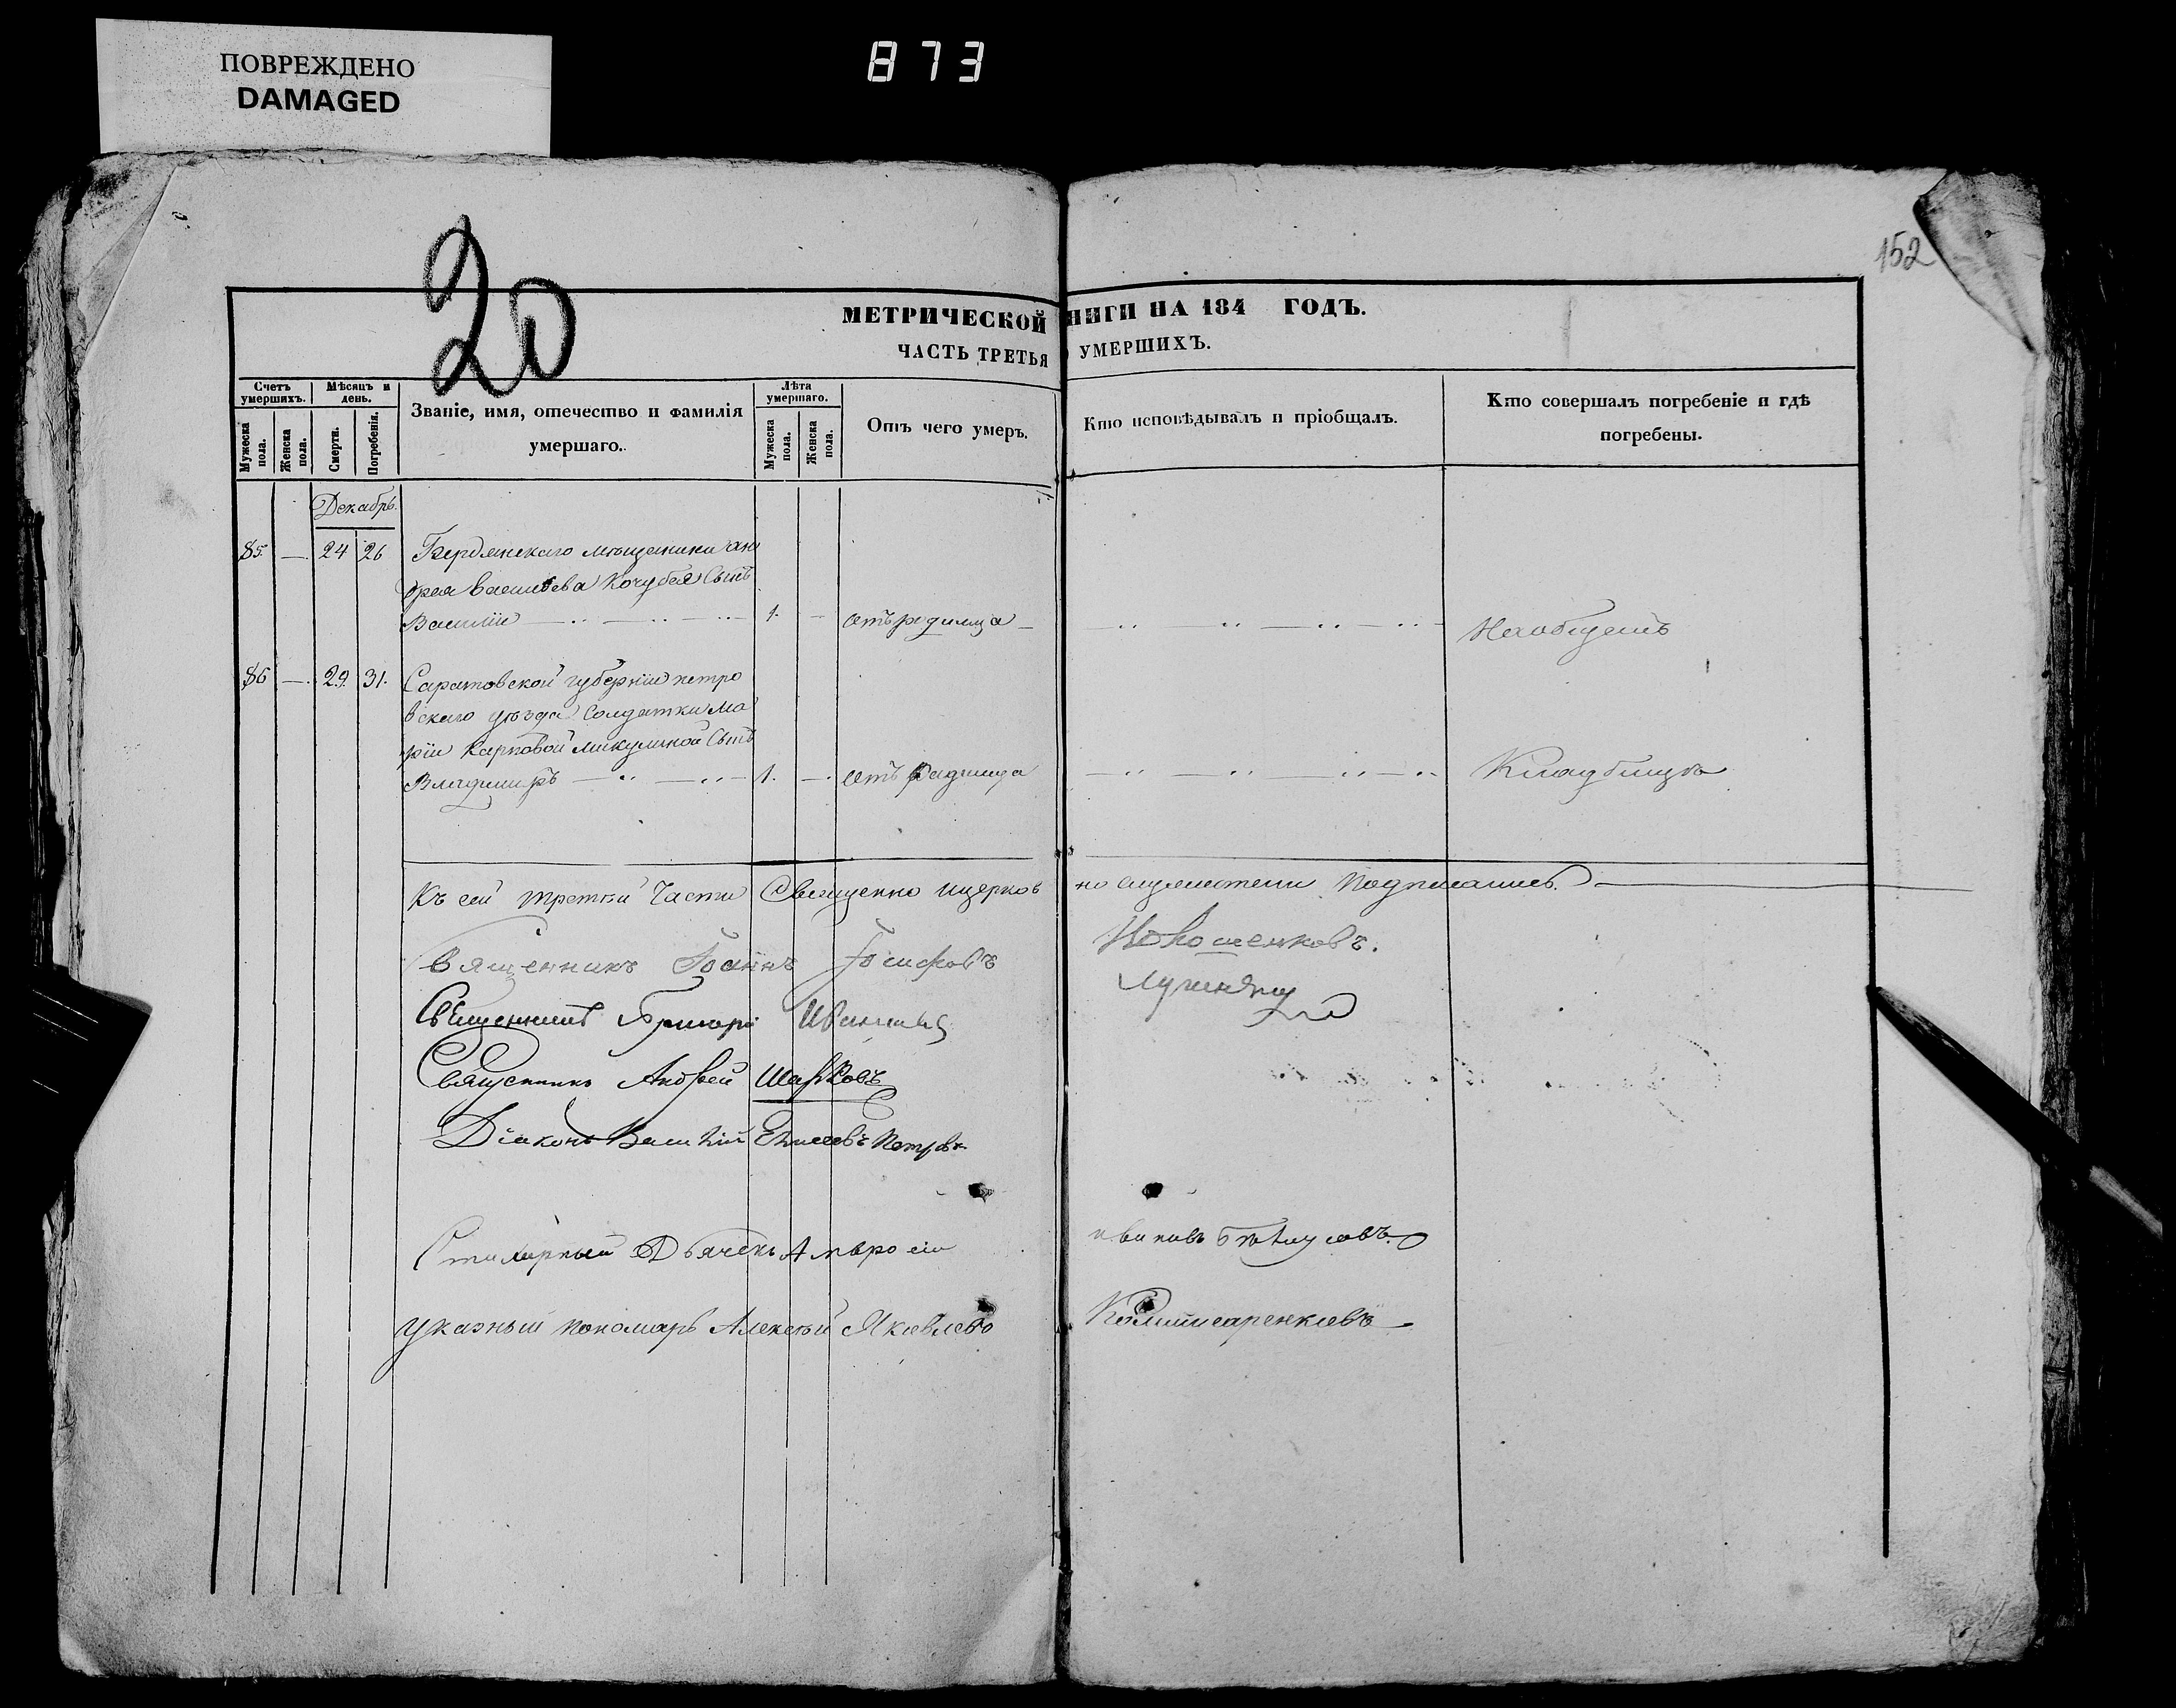 ПОВРЕЖДЕНО
DAMAGED
873
152
20
МЕТРИЧЕСКОЙ НИГИ НА 184 ГОДЪ.
ЧАСТЬ ТРЕТЬЯ УМЕРШИХЪ.
Счетъ умершихъ.
Мужеска пола.
Женска пола.
Мѣсяцъ и день.
Смерти.
Погребенія.
Званіе, имя, отечество и фамилія умершаго.
Лѣта умершаго.
Мужеска пола.
Женска пола.
Отъ чего умеръ.
Кто исповѣдывалъ и пріобщалъ.
Кто совершалъ погребеніе и гдѣ погребены.
Декабрь.
85. — 24 26 Бердянскаго мѣщанина Ан
дрея Васильева Кочубея Сынъ
Василій 1. — отъ родимца На общемъ
86 — 29. 31. Саратовской губерніи петро
вскаго уѣзда Солдатки Ма
ріи Карповой Микулиной Сынъ
Владимиръ 1. — отъ родимца Кладбищѣ
Къ сей третьей Части Священно и церков но служители подписались.
Священникъ Іоаннъ Іосифовъ
Священникъ Григорій
Священникъ Андрей
Діаконъ Василій Елисеевъ Петровъ
Стихарный Дьячекъ Амвросій
указный пономарь Алексѣй Яковлевъ